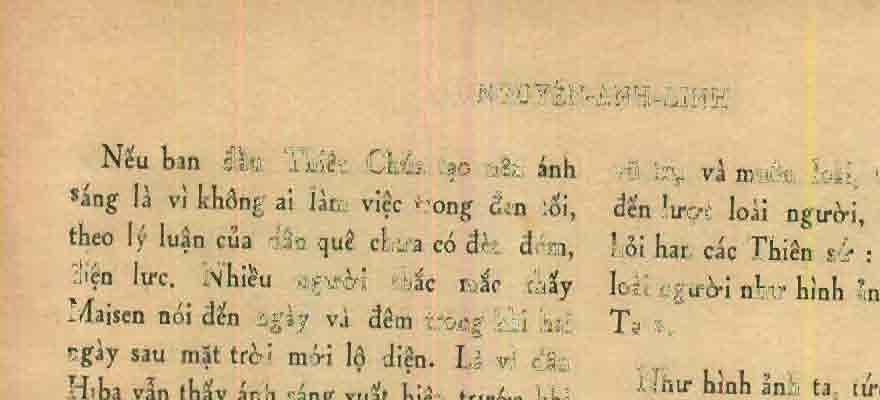 NGUYỄN-ANH-LINH
Nếu ban đầu Thiên Chúa tạo nên ánh
sáng là vì không ai làm việc trong đen tối,
theo lý luận của dân quê chưa có đèn đóm,
điện lực. Nhiều người thắc mắc thấy
Maisen nói đến ngày và đêm trong khi hai
ngày sau mặt trời mới lộ diện. Là vì dân
Hiba vẫn thấy ánh sáng xuất hiện trước khi
vũ trụ và muôn loài,
đến lượt loài người,
hỏi han các Thiên sứ :
loài người như hình ản
Ta ».
Như hình ảnh ta, tức